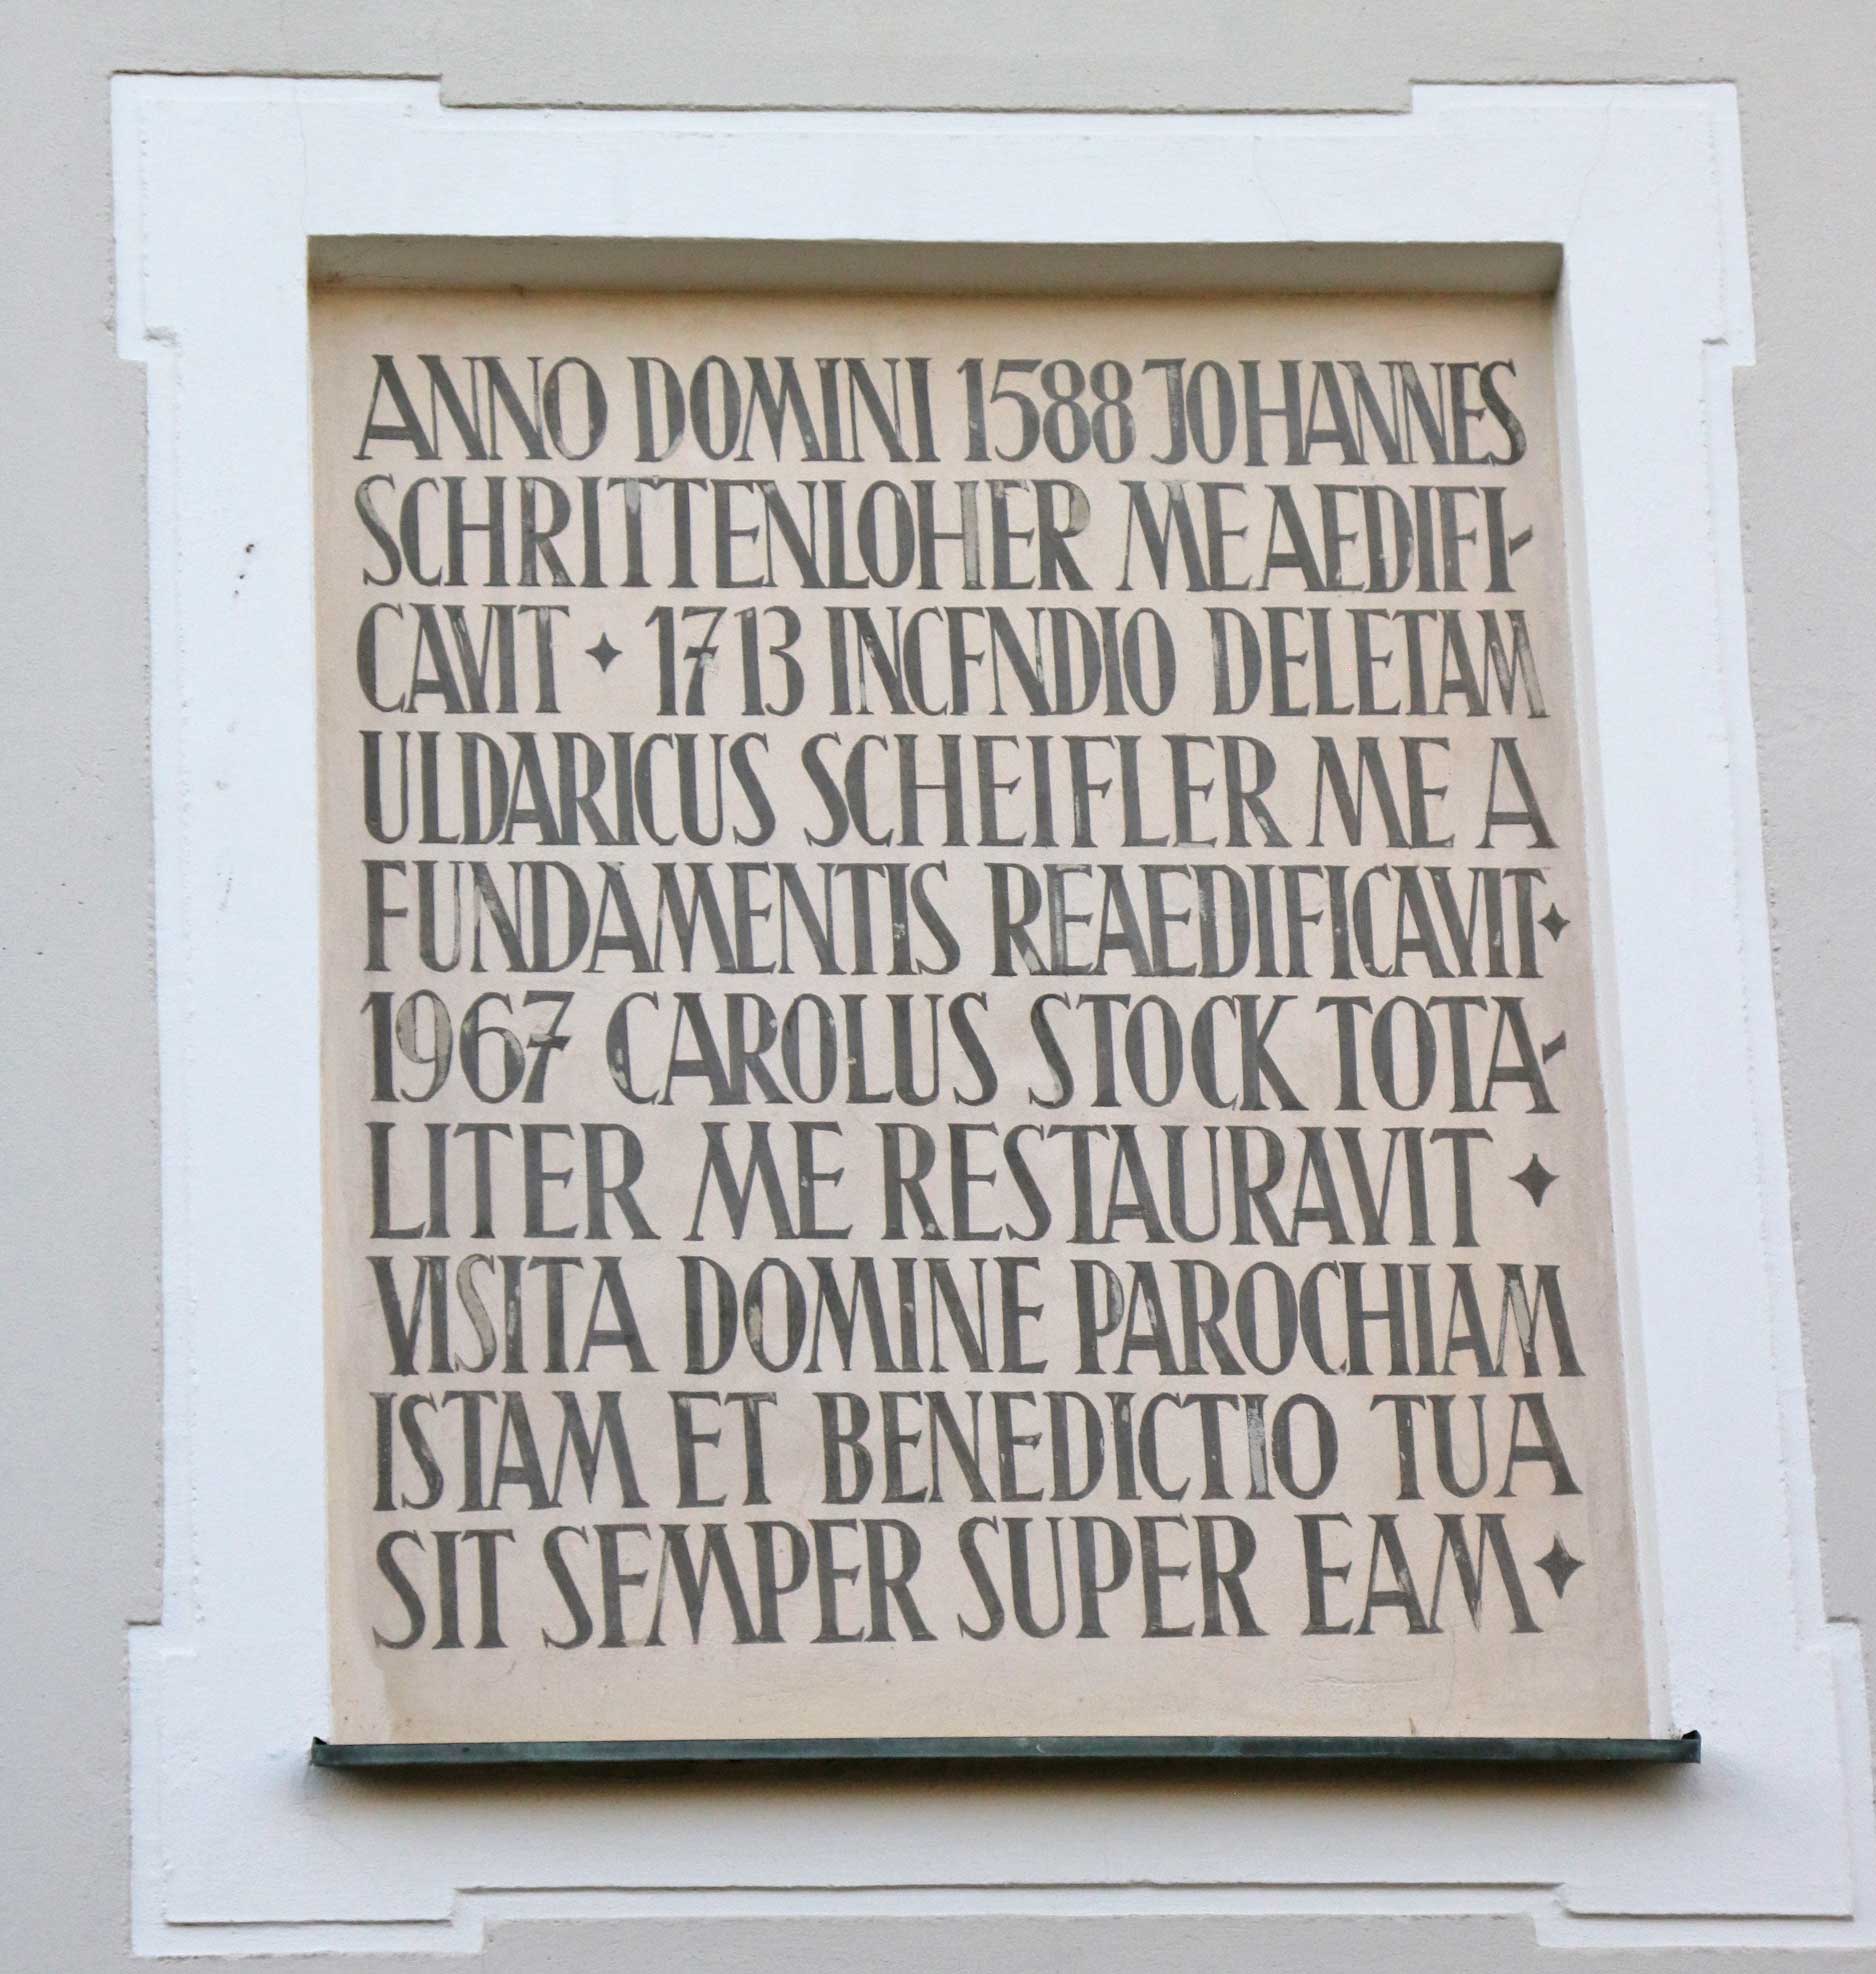 ANNO DOMINI 1588 JOHANNES
SCHRITTENLOHER ME AEDIFI-
CAVIT ✦ 1713 INCFNDIO DELETAM
ULDARICUS SCHEIFLER ME A
FUNDAMENTIS REAEDIFICAVIT ✦
1967 CAROLUS STOCK TOTA-
LITER ME RESTAURAVIT ✦
VISITA DOMINE PAROCHIAM
ISTAM ET BENEDICTIO TUA
SIT SEMPER SUPER EAM ✦